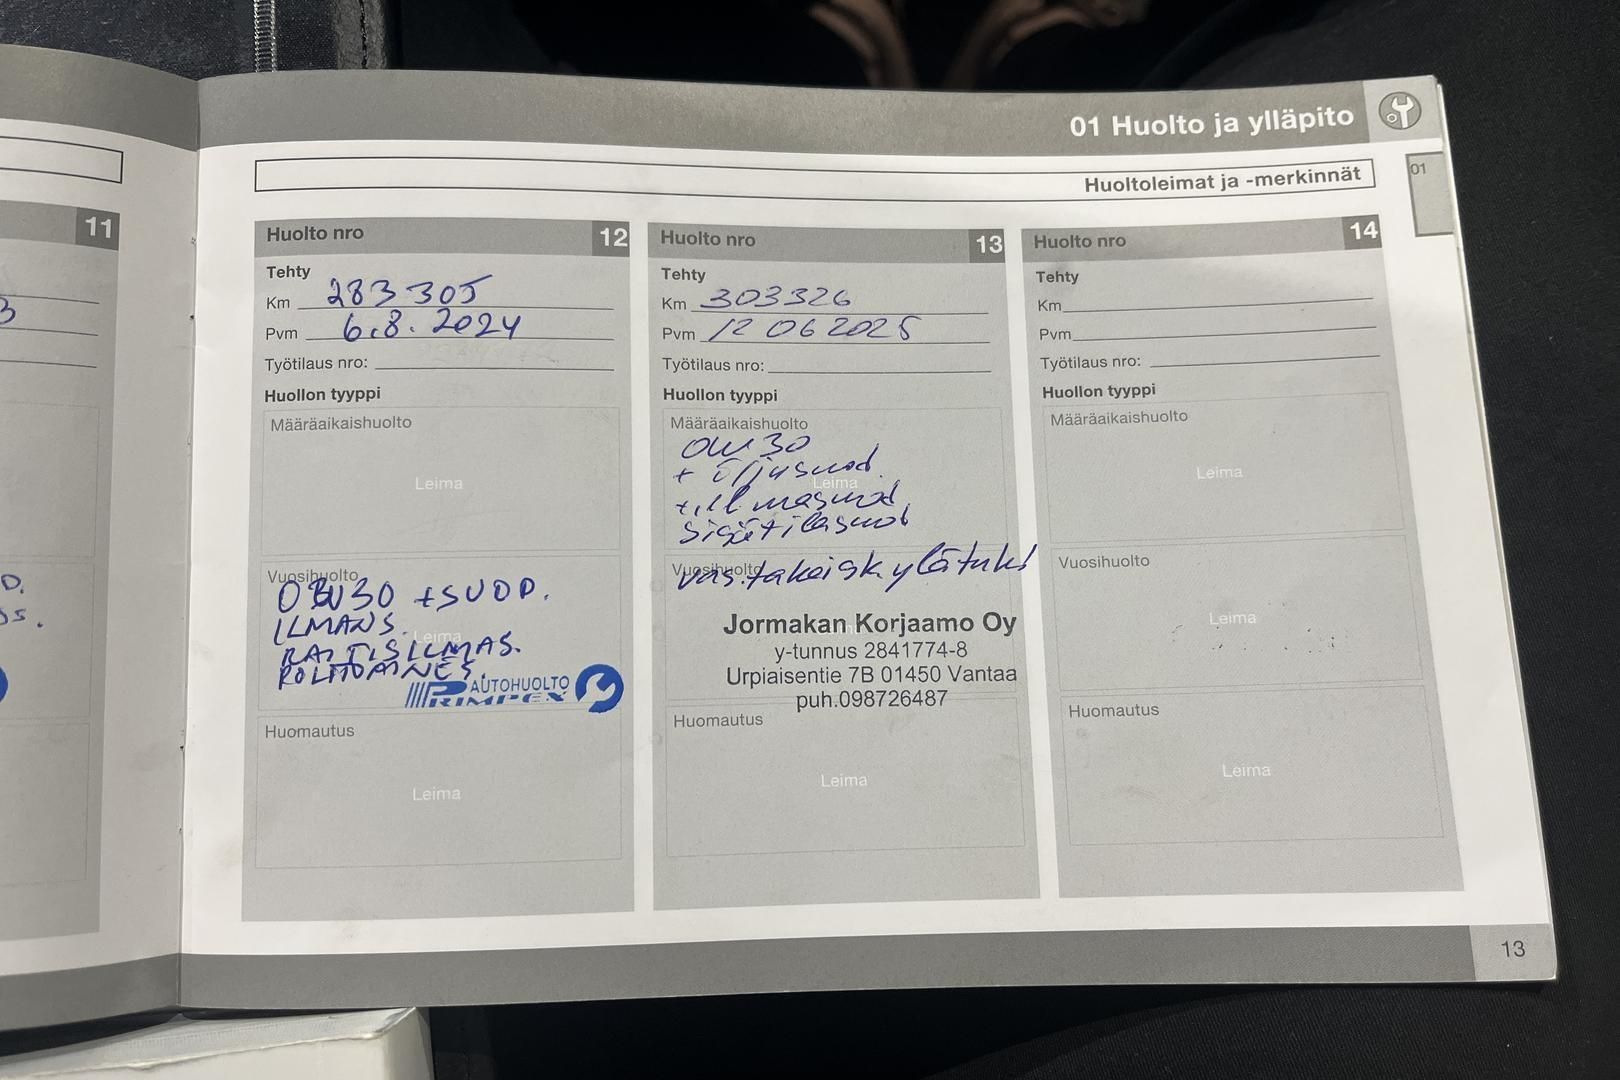 01 Huolto ja ylläpito
01
Huoltoleimat ja -merkinnät
11
3
D.
s.
Huolto nro 12
Tehty
Km 283 305
Pvm 6.8. 2024
Työtilaus nro:
Huollon tyyppi
Määräaikaishuolto
Leima
Vuosihuolto
0W30 +SUOD.
ILMANS.
Leima
RAITISILMAS.
POLTTOAINES.
AUTOHUOLTO
PRIMPEX
Huomautus
Leima
Huolto nro 13
Tehty
Km 303326
Pvm 12 06 2025
Työtilaus nro:
Huollon tyyppi
Määräaikaishuolto
0W30
+ öljysuod.
Leima
+ilmasuod.
sisätilasuod
Vuosihuolto
vas.takaisk.ylätuki
Jormakan Korjaamo Oy
y-tunnus 2841774-8
Urpiaisentie 7B 01450 Vantaa
puh.098726487
Huomautus
Leima
Huolto nro 14
Tehty
Km
Pvm
Työtilaus nro:
Huollon tyyppi
Määräaikaishuolto
Leima
Vuosihuolto
Leima
Huomautus
Leima
13